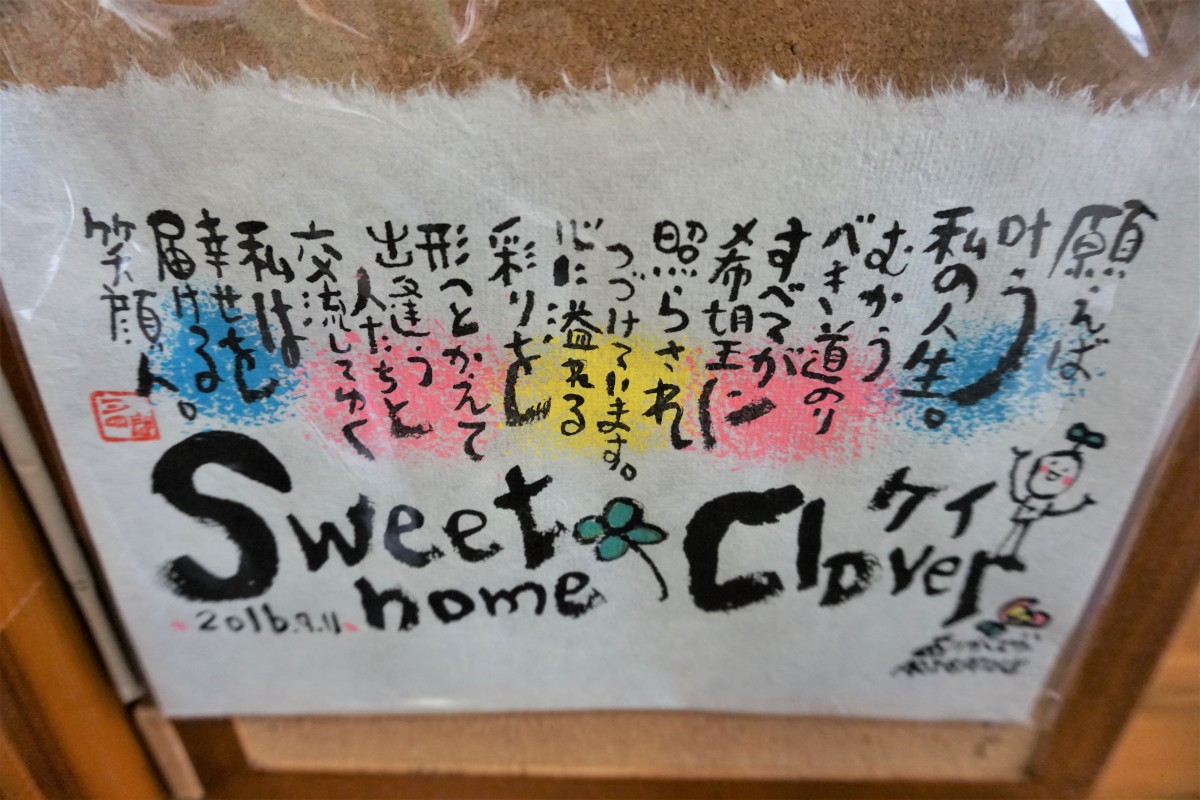 願えば
叶う
私の人生。
むかう
べき道のり
すべてが
希望に
照らされ
つづけています。
心に溢れる
彩りを
形へとかえて
出逢う
人たちと
交流してゆく
私は
幸せを
届ける。
笑顔人
ケイ
Sweet Clover
home
2016.9.11